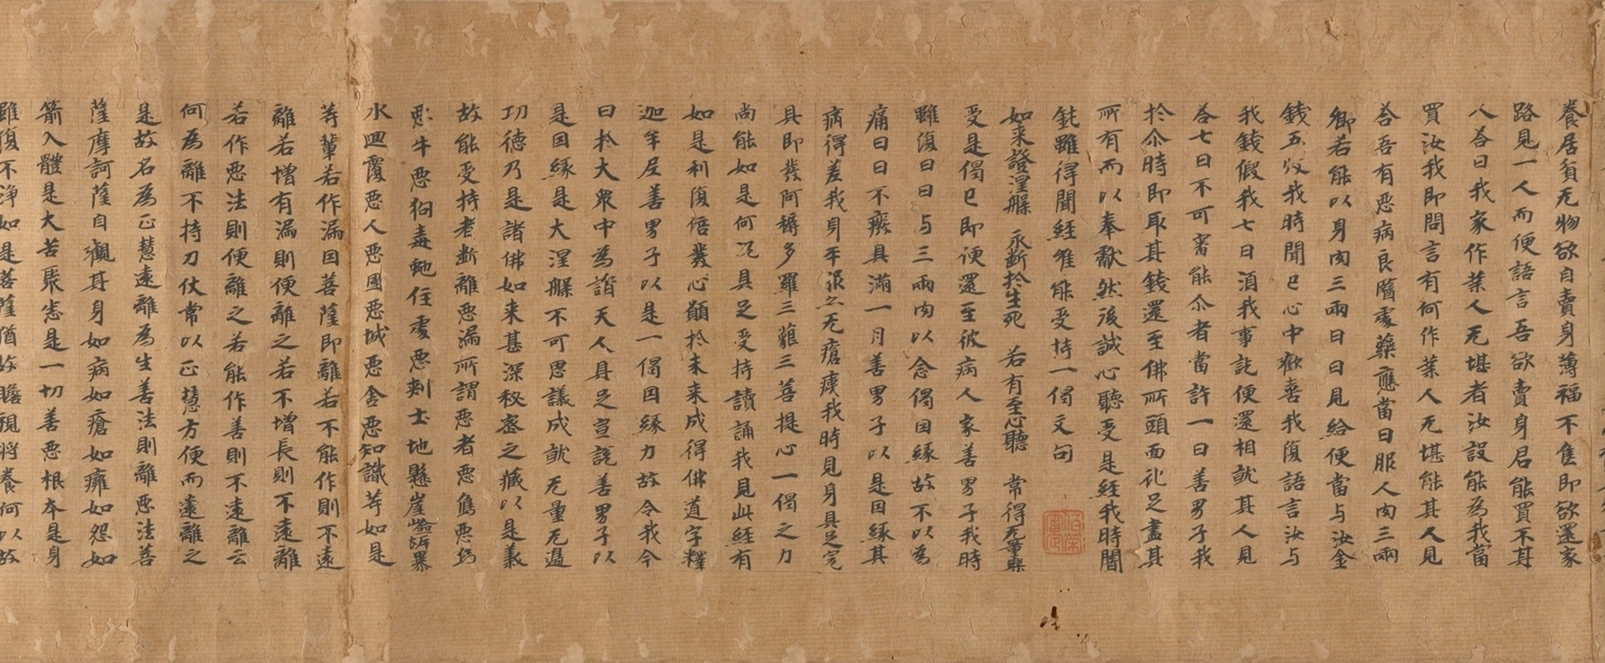 養居貧无物欲自賣身薄福不售即欲還家
路見一人而便語言吾欲賣身君能買不其
人荅曰我家作業人无堪者汝設能為我當
買汝我即問言有何作業人无堪能其人見
荅吾有悪病良醫處藥應當日服人肉三兩
卿若能以身肉三兩日日見給便當与汝金
錢五枚我時聞已心中歡喜我復語言汝与
我錢假我七日湏我事訖便還相就其人見
荅七日不可審能尒者當許一日善男子我
於尒時即取其錢還至佛所頭面礼足盡其
所有而以奉獻然後誠心聽受是經我時闇
鈍雖得聞經唯能受持一偈文句
如来證涅槃 永断於生死 若有至心聽 常得无量樂
受是偈已即便還至彼病人家善男子我時
雖復日日与三兩肉以念偈因緣故不以為
痛日日不癈具滿一月善男子以是因緣其
病得差我身平復亦无瘡痍我時見身具足完
具即發阿耨多羅三藐三菩提心一偈之力
尚能如是何况具足受持讀誦我見此經有
如是利復倍發心願於未来成得佛道字釋
迦牟尼善男子以是一偈因緣力故令我今
日於大衆中為諸天人具足宣說善男子以
是因緣是大涅槃不可思議成就无量无邊
功德乃是諸佛如来甚深秘密之藏以是義
故能受持者断離悪漏所謂悪者悪象悪馬
悪牛悪狗毒虵住處悪刾土地懸崖嶮岸暴
水洄澓悪人悪國悪城悪舍悪知識等如是
等輩若作漏因菩薩即離若不能作則不遠
離若增有漏則便離之若不增長則不遠離
若作悪法則便離之若能作善則不遠離云
何為離不持刀仗常以正慧方便而遠離之
是故名為正慧遠離為生善法則離悪法菩
薩摩訶薩自觀其身如病如瘡如癰如怨如
箭入體是大苦聚悉是一切善悪根本是身
雖復不淨如是菩薩猶故瞻視將養何以故